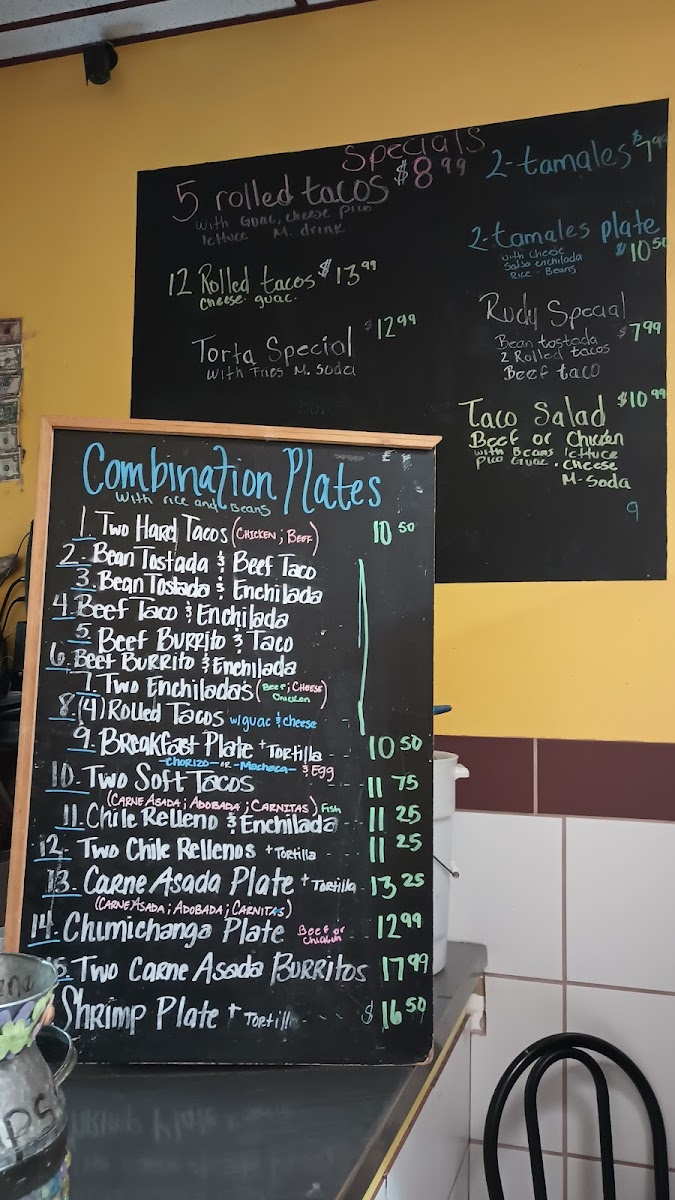 Specials
5 rolled tacos $8.99
with Guac, cheese pico
lettuce M. drink
12 Rolled tacos $13.99
cheese. guac.
Torta Special $12.99
with Fries M. Soda
2-tamales $7.99
2-tamales plate
with cheese $10.50
Salsa enchilada
Rice - Beans
Rudy Special
Bean tostada $7.99
2 Rolled tacos
Beef taco
Taco Salad $10.99
Beef or Chicken
with Beans lettuce
Pico Guac. cheese
M. Soda
9
Combination Plates
with rice and Beans
1. Two Hard Tacos (Chicken; Beef) 10 50
2. Bean Tostada & Beef Taco
3. Bean Tostada & Enchilada
4. Beef Taco & Enchilada
5. Beef Burrito & Taco
6. Beef Burrito & Enchilada
7. Two Enchiladas (Beef; Cheese
Chicken)
8. (4) Rolled Tacos w/guac & cheese
9. Breakfast Plate + Tortilla 10 50
Chorizo - or - Machaca - & Egg
10. Two Soft Tacos 11 75
(Carne Asada; Adobada; Carnitas) Fish
11. Chile Relleno & Enchilada 11 25
12. Two Chile Rellenos + Tortilla 11 25
13. Carne Asada Plate + Tortilla 13 25
(Carne Asada; Adobada; Carnitas)
14. Chumichanga Plate Beef or 12 99
Chicken
5. Two Carne Asada Burritos 17 99
Shrimp Plate + Tortill $16 50